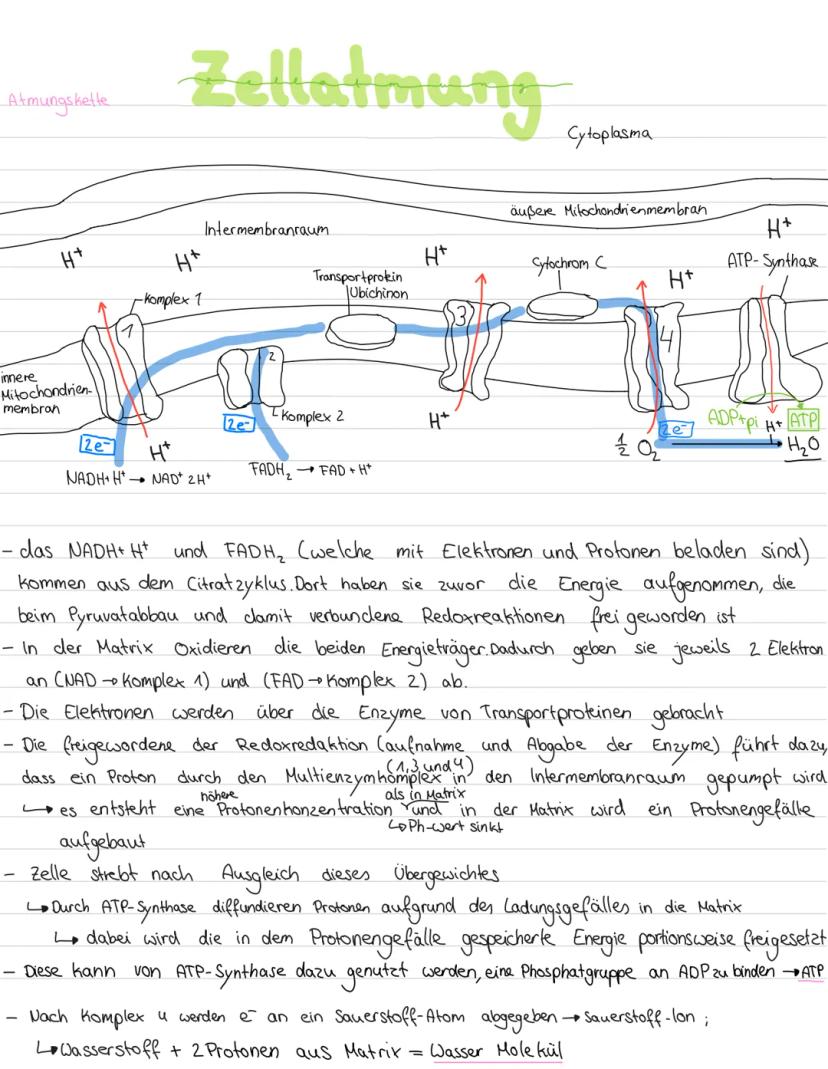 Zellatmung
Atmungskette
Cytoplasma
äußere Mitochondrienmembran
Intermembranraum
H+
H+
H+
H+
H+
Transportprotein
Ubichinon
Cytochrom C
ATP-Synthase
Komplex 1
1
2
3
4
innere
Mitochondrien-
membran
Komplex 2
2e-
2e-
2e-
H+
H+
ADP+pi
H+
ATP
½ O2
H2O
NADH+H+ → NAD+ 2H+
FADH2 → FAD + H+
- das NADH+H+ und FADH2 (welche mit Elektronen und Protonen beladen sind)
kommen aus dem Citratzyklus. Dort haben sie zuvor die Energie aufgenommen, die
beim Pyruvatabbau und damit verbundene Redoxreaktionen frei geworden ist
- In der Matrix Oxidieren die beiden Energieträger. Dadurch geben sie jeweils 2 Elektron
an (NAD → Komplex 1) und (FAD → Komplex 2) ab.
- Die Elektronen werden über die Enzyme von Transportproteinen gebracht
- Die freigewordene der Redoxredaktion (aufnahme und Abgabe der Enzyme) führt dazu,
(1,3 und 4)
dass ein Proton durch den Multienzymkomplex in den Intermembranraum gepumpt wird
höhere als in Matrix
↳ es entsteht eine Protonenkonzentration und in der Matrix wird ein Protonengefälle
↳ Ph-wert sinkt
aufgebaut
- Zelle strebt nach Ausgleich dieses Übergewichtes
↳ Durch ATP-Synthase diffundieren Protonen aufgrund des Ladungsgefälles in die Matrix
↳ dabei wird die in dem Protonengefälle gespeicherte Energie portionsweise freigesetzt
- Diese kann von ATP-Synthase dazu genutzt werden, eine Phosphatgruppe an ADP zu binden → ATP
- Nach Komplex 4 werden e- an ein Sauerstoff-Atom abgegeben → Sauerstoff-Ion ;
↳ Wasserstoff + 2 Protonen aus Matrix = Wasser Molekül